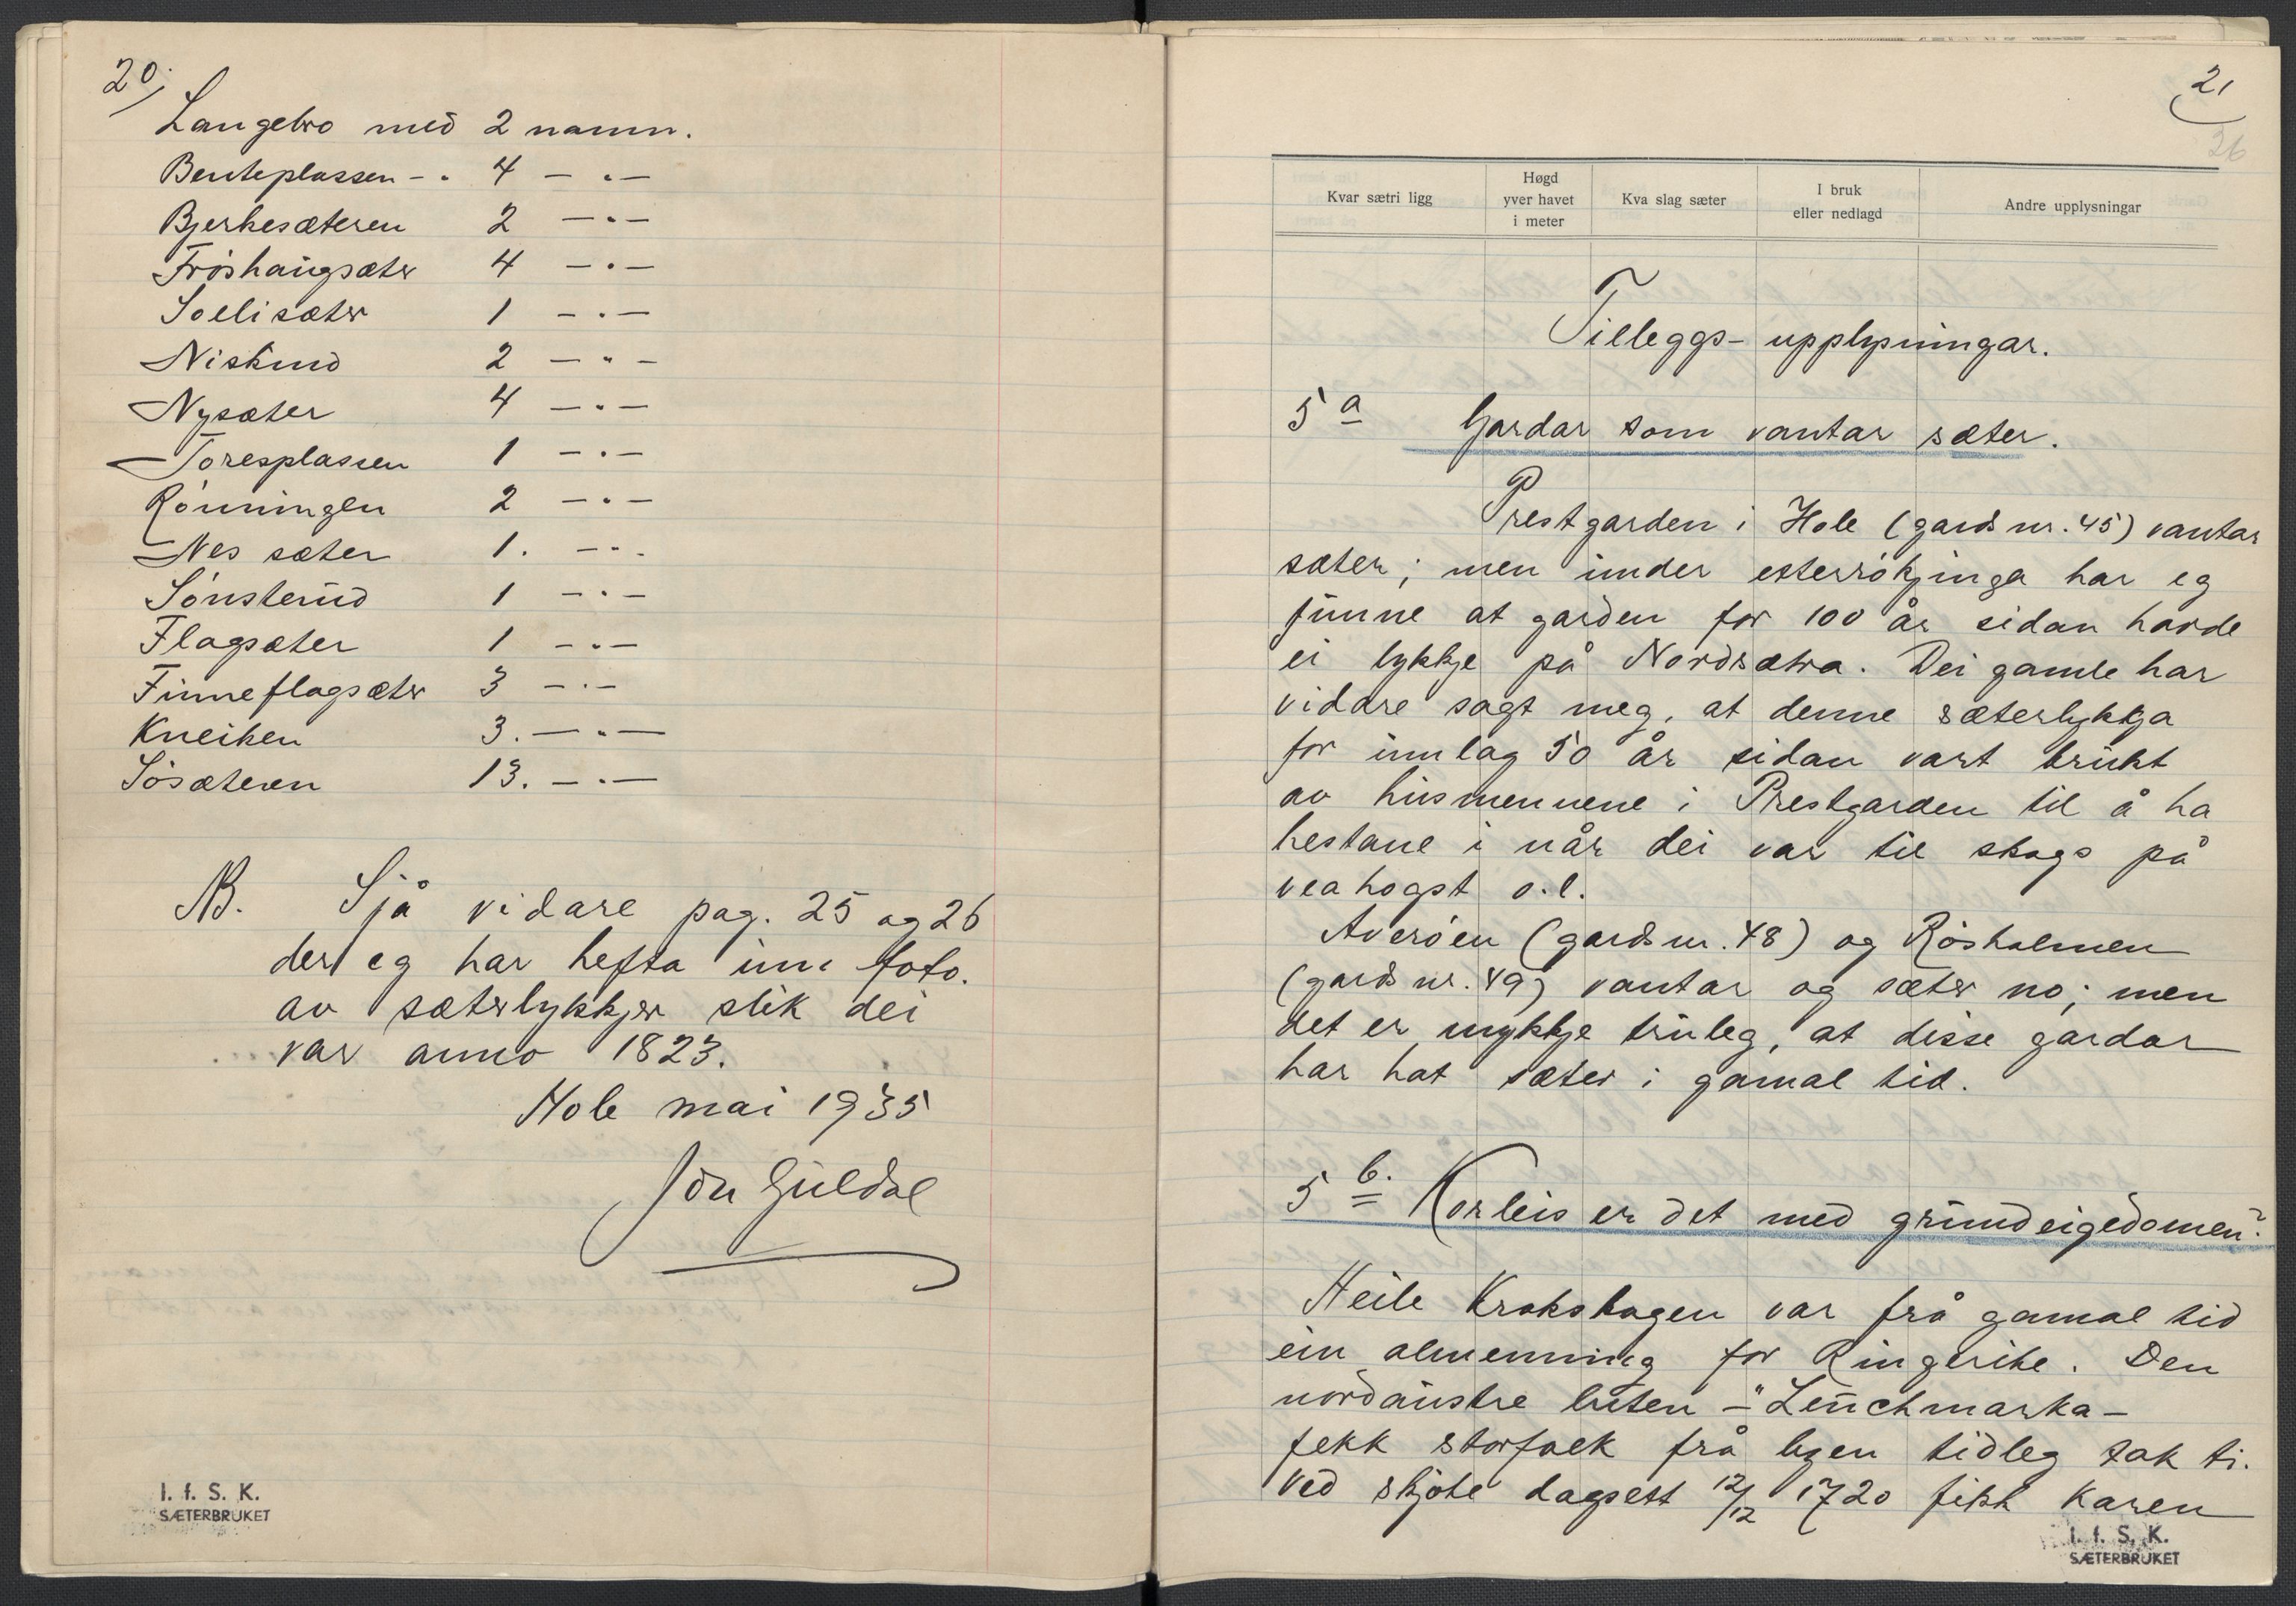 20.
Langebro med 2 namn.
Benteplassen - . 4 — . —
Bjerkesæteren 2 — . —
Frøshaugsæter 4 — . —
Soelisæter 1 — . —
Niskinn 2 — " —
Nysæter 4 — " —
Toresplassen 1 — . —
Rønningen 2 — . —
Nes sæter 1. — " -
Sønsterud 1 — . —
Flagsæter 1 — . —
Finneflagsæter 3 — . —
Kneiken 3. — " —
Søsæteren 13. — . —
NB. Sjå vidare pag. 25 og 26
der eg har hefta inn foto.
av sæterlykkjer slik dei
var anno 1823.
Hole mai 1935
Jon Guldal
I. f. S. K.
SÆTERBRUKET
21
36
Kvar sætri ligg
Høgd yver havet i meter
Kva slag sæter
I bruk eller nedlagd
Andre upplysningar
Tilleggs-upplysningar.
5 a Gardar som vantar sæter.
Prestgarden i Hole (gards nr. 45) vantar
sæter; men under etterrøkjinga har eg
funne at garden for 100 år sidan havde
ei lykkje på Nordsætra. Dei gamle har
viddre sagt meg, at denne sæterlykkja
for innlag 50 år sidan vart brukt
av husmennene i Prestgarden til å ha
hestane i når dei var til skogs på
veahogst o.l.
Averøen (gards nr. 48) og Røsholmen
(gards nr. 49) vantar og sæter no; men
det er mykkje truleg, at disse gardar
har hat sæter i gamal tid.
5 b. Korleis er det med grundeigedomen?
Heile Krokskogen var frå gamal tid
ein almenning for Ringerike. Den
nordaustre luten - "Leuchmarka -
fekk storfolk frå byen tidleg tak ti.
Ved skjøte dagsett 12/12 1720 fikk Karen
I. f. S. K.
SÆTERBRUKET